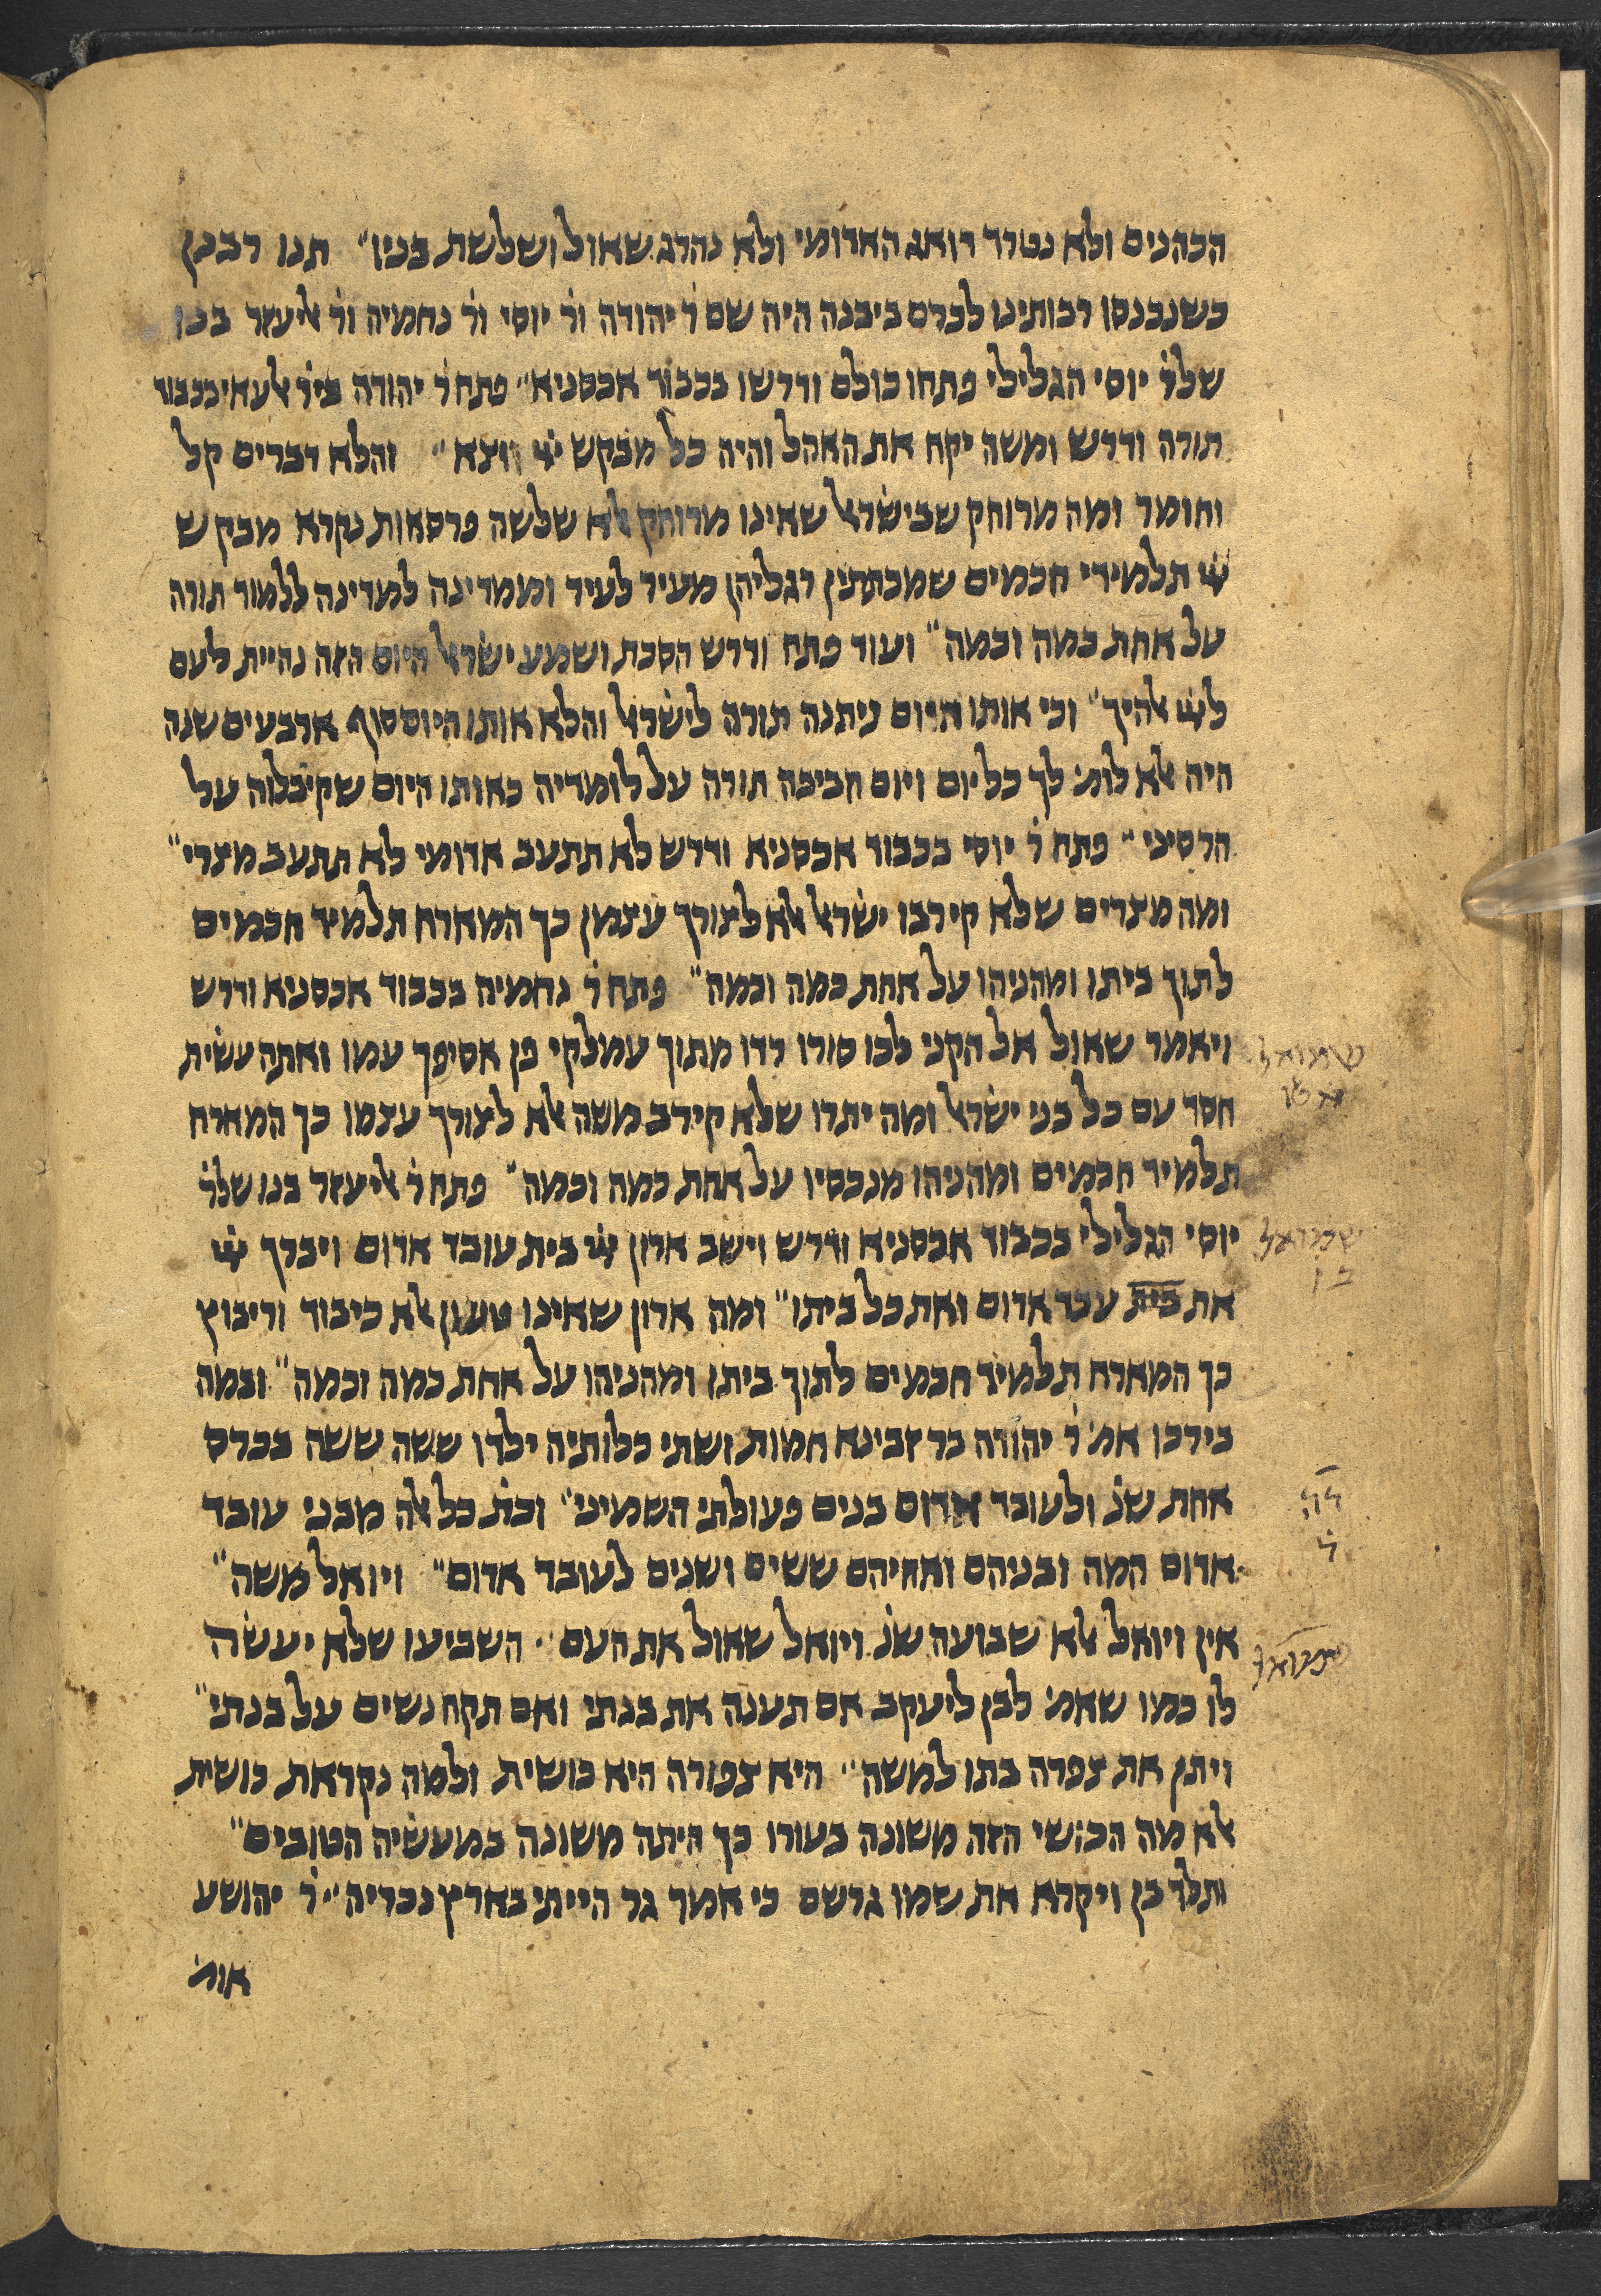 הכהנים ולא נטרד דואג האדומי ולא נהרג שאול ושלשת בניו״ תנו רבנן
כשנכנסו רבותינו לכרם ביבנה היה שם ר׳ יהודה ור׳ יוסי ור׳ נחמיה ור׳ אליעזר בנו
שלר׳ יוסי הגלילי פתחו כולם ודרשו בכבוד אכסניא״ פתח ר׳ יהודה ביר׳ אלעאי בכבוד
תורה ודרש ומשה יקח את האהל והיה כל מבקש ייי יצא״ והלא דברים קל
וחומר ומה מרוחק שבישראל שאינו מרוחק אלא שלשה פרסאות נקרא מבקש
ייי תלמידי חכמים שמכתתין רגליהן מעיר לעיר וממדינה למדינה ללמוד תורה
על אחת כמה וכמה״ ועוד פתח ודרש הסכת ושמע ישראל היום הזה נהיית לעם
לייי אלהיך״ וכי אותו היום ניתנה תורה לישראל והלא אותו היום סוף ארבעים שנה
היה אלא לומ׳ לך כל יום ויום חביבה תורה על לומדיה כאותו היום שקיבלוה על
הר סיני״ פתח ר׳ יוסי בכבוד אכסניא ודרש לא תתעב אדומי לא תתעב מצרי״
ומה מצרים שלא קירבו ישראל אלא לצורך עצמן כך המארח תלמיד חכמים
לתוך ביתו ומהניהו על אחת כמה וכמה״ פתח ר׳ נחמיה בכבוד אכסניא ודרש
ויאמר שאול אל הקני לכו סורו רדו מתוך עמלקי פן אסיפך עמו ואתה עשית
שמואל
א טו
חסד עם כל בני ישראל ומה יתרו שלא קירב משה אלא לצורך עצמו כך המארח
תלמיד חכמים ומהניהו מנכסיו על אחת כמה וכמה״ פתח ר׳ אליעזר בנו שלר׳
יוסי הגלילי בכבוד אכסניא ודרש וישב ארון ייי בית עובד אדום ויברך ייי
שמואל
ב ו
את בית עבד אדום ואת כל ביתו״ ומה ארון שאינו טעון אלא כיבוד וריבוץ
כך המארח תלמיד חכמים לתוך ביתו ומהניהו על אחת כמה וכמה״ ובמה
בירכו אמ׳ ר׳ יהודה בר זבינא חמות ושתי כלותיה ילדו ששה ששה בכרס
אחת שנ׳ ולעובד אדום בנים פעולתי השמיני״ וכת׳ כל אלה מבני עובד
אדום המה ובניהם ואחיהם ששים ושנים לעובד אדום״ ויואל משה״
אין ויואל אלא שבועה שנ׳ ויואל שאול את העם״ השביעו שלא יעשה
שמואל
לו כמו שאמ׳ לבן ליעקב אם תענה את בנתי ואם תקח נשים על בנתי״
ויתן את צפרה בתו למשה״ היא צפורה היא כושית ולמה נקראת כושית
אלא מה הכושי הזה משונה בעורו כך היתה משונה במעשיה הטובים״
ותלד בן ויקרא את שמו גרשם כי אמר גר הייתי בארץ נכריה״ ר׳ יהושע
אומ׳